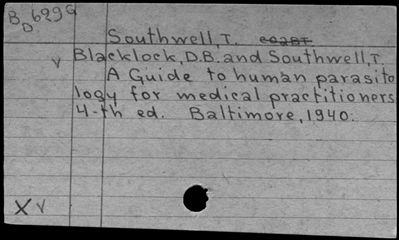 BD629g
Southwell, T.
v Blacklock, D.B. and Southwell, T.
A Guide to human parasito
logy for medical practitioners
4-th ed. Baltimore, 1940.
X v